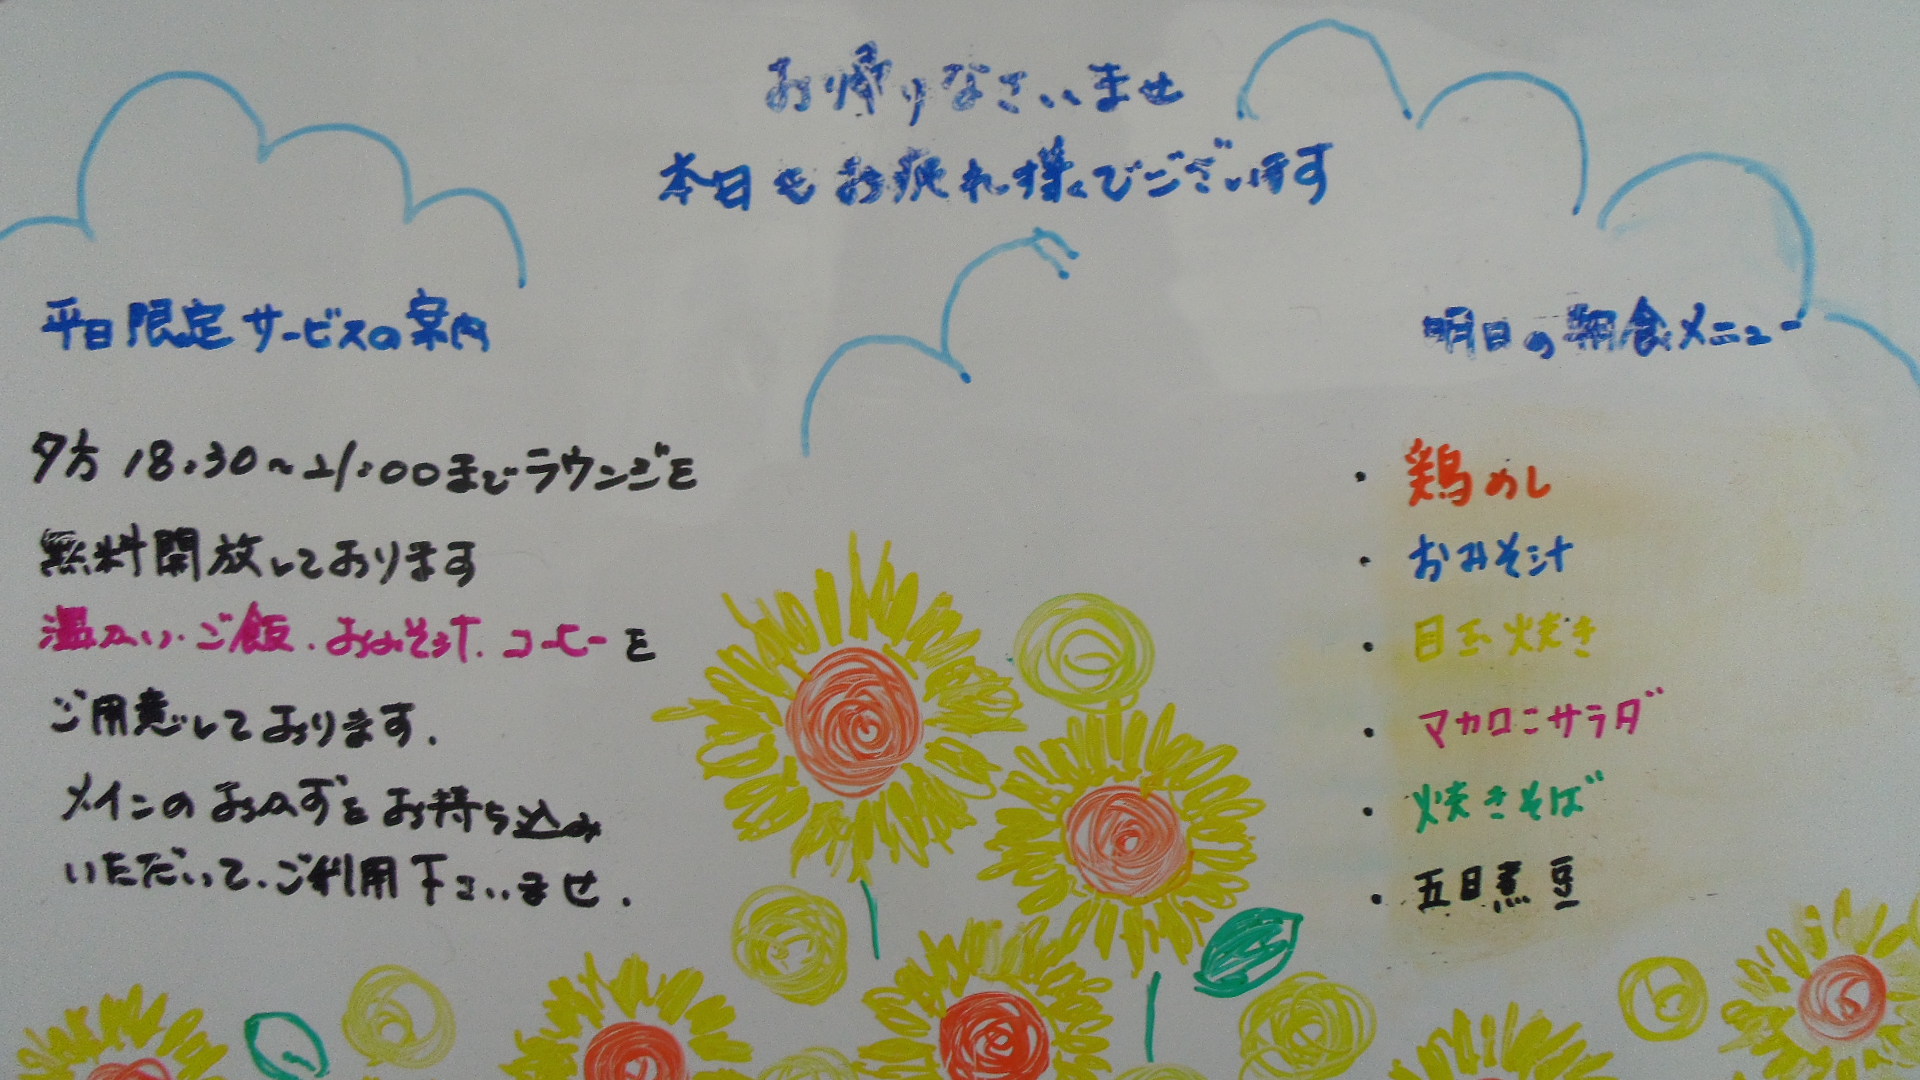 お帰りなさいませ
本日もお疲れ様でございます
平日限定サービスの案内
夕方 18:30~21:00までラウンジを
無料開放しております
温かい・ご飯・おみそ汁・コーヒーを
ご用意しております.
メインのおかずをお持ち込み
いただいて、ご利用下さいませ.
明日の朝食メニュー
・鶏めし
・おみそ汁
・目玉焼き
・マカロニサラダ
・焼きそば
・五目煮豆